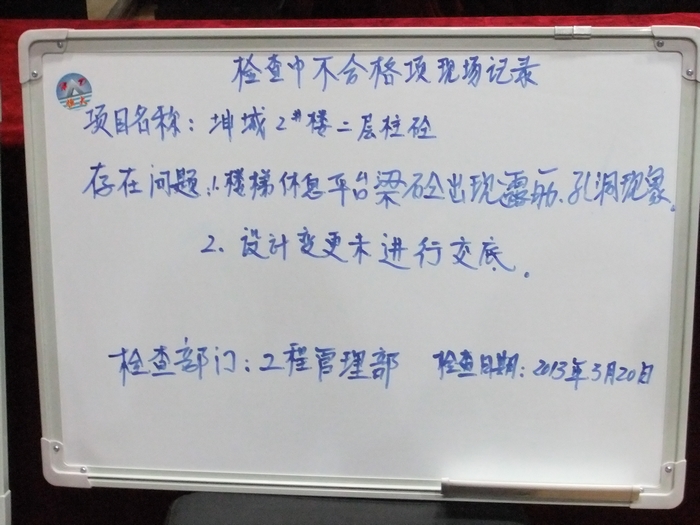 检查中不合格项现场记录
项目名称：坤城2#楼二层柱砼
存在问题：1.楼梯休息平台梁砼出现露筋、孔洞现象。
2、设计变更未进行交底。
检查部门：工程管理部 检查日期：2013年3月20日